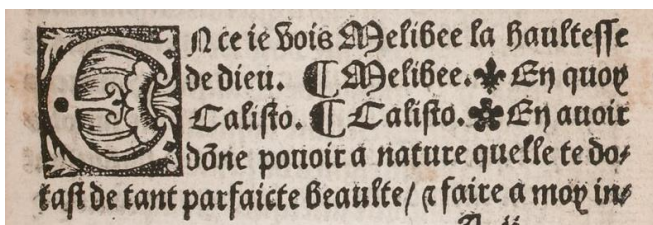 EN ce ie vois Melibee la haultesse
de dieu. ¶ Melibee. ⚜ En quoy
Calisto. ¶ Calisto. ✽ En auoir
dõne pouoir a nature quelle te do⸗
tast de tant parfaicte beaulte/ ⁊ faire a moy in⸗
A.ii